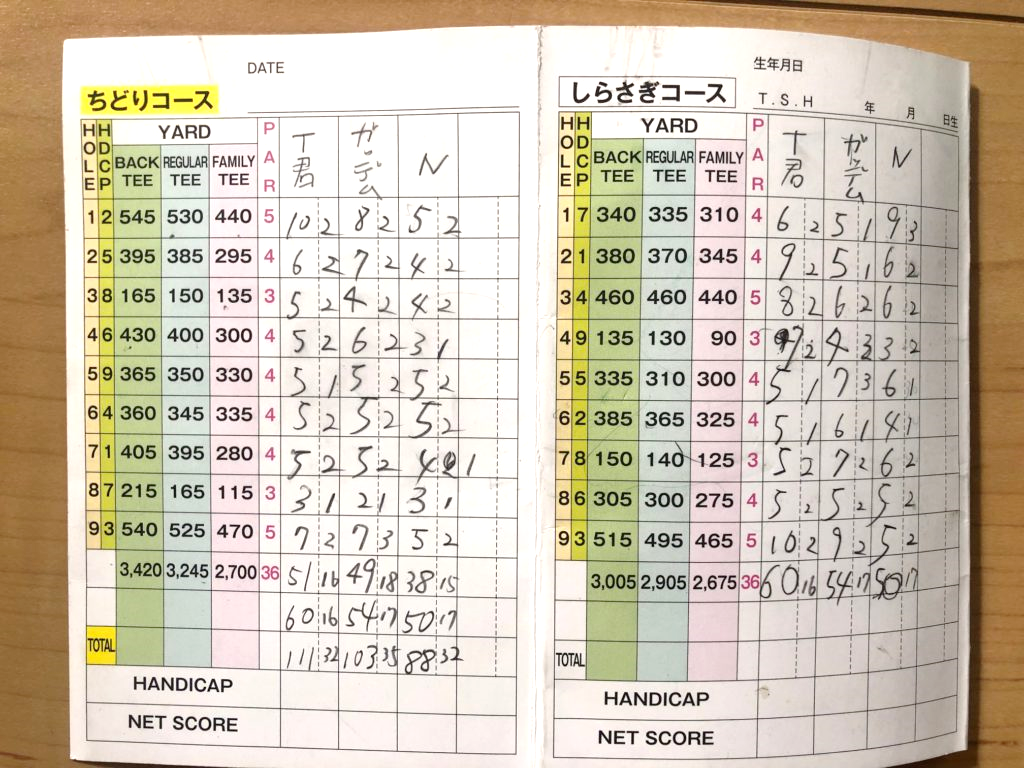 DATE
ちどりコース
HOLE HDCP YARD PAR T君 ガッデム N
BACK TEE REGULAR TEE FAMILY TEE
1 2 545 530 440 5 10 2 8 2 5 2
2 5 395 385 295 4 6 2 7 2 4 2
3 8 165 150 135 3 5 2 4 2 4 2
4 6 430 400 300 4 5 2 6 2 3 1
5 9 365 350 330 4 5 1 5 2 5 2
6 4 360 345 335 4 5 2 5 2 5 2
7 1 405 395 280 4 5 2 5 2 4 1
8 7 215 165 115 3 3 1 2 1 3 1
9 3 540 525 470 5 7 2 7 3 5 2
3,420 3,245 2,700 36 51 16 49 18 38 15
60 16 54 17 50 17
TOTAL 111 32 103 35 88 32
HANDICAP
NET SCORE
生年月日
しらさぎコース
T.S.H 年 月 日生
HOLE HDCP YARD PAR T君 ガッデム N
BACK TEE REGULAR TEE FAMILY TEE
1 7 340 335 310 4 6 2 5 1 9 3
2 1 380 370 345 4 9 2 5 1 6 2
3 4 460 460 440 5 8 2 6 2 6 2
4 9 135 130 90 3 7 2 4 3 3 2
5 5 335 310 300 4 5 1 7 3 6 1
6 2 385 365 325 4 5 1 6 1 4 1
7 8 150 140 125 3 5 2 7 2 6 2
8 6 305 300 275 4 5 2 5 2 5 2
9 3 515 495 465 5 10 2 9 2 5 2
3,005 2,905 2,675 36 60 16 54 17 50 17
TOTAL
HANDICAP
NET SCORE